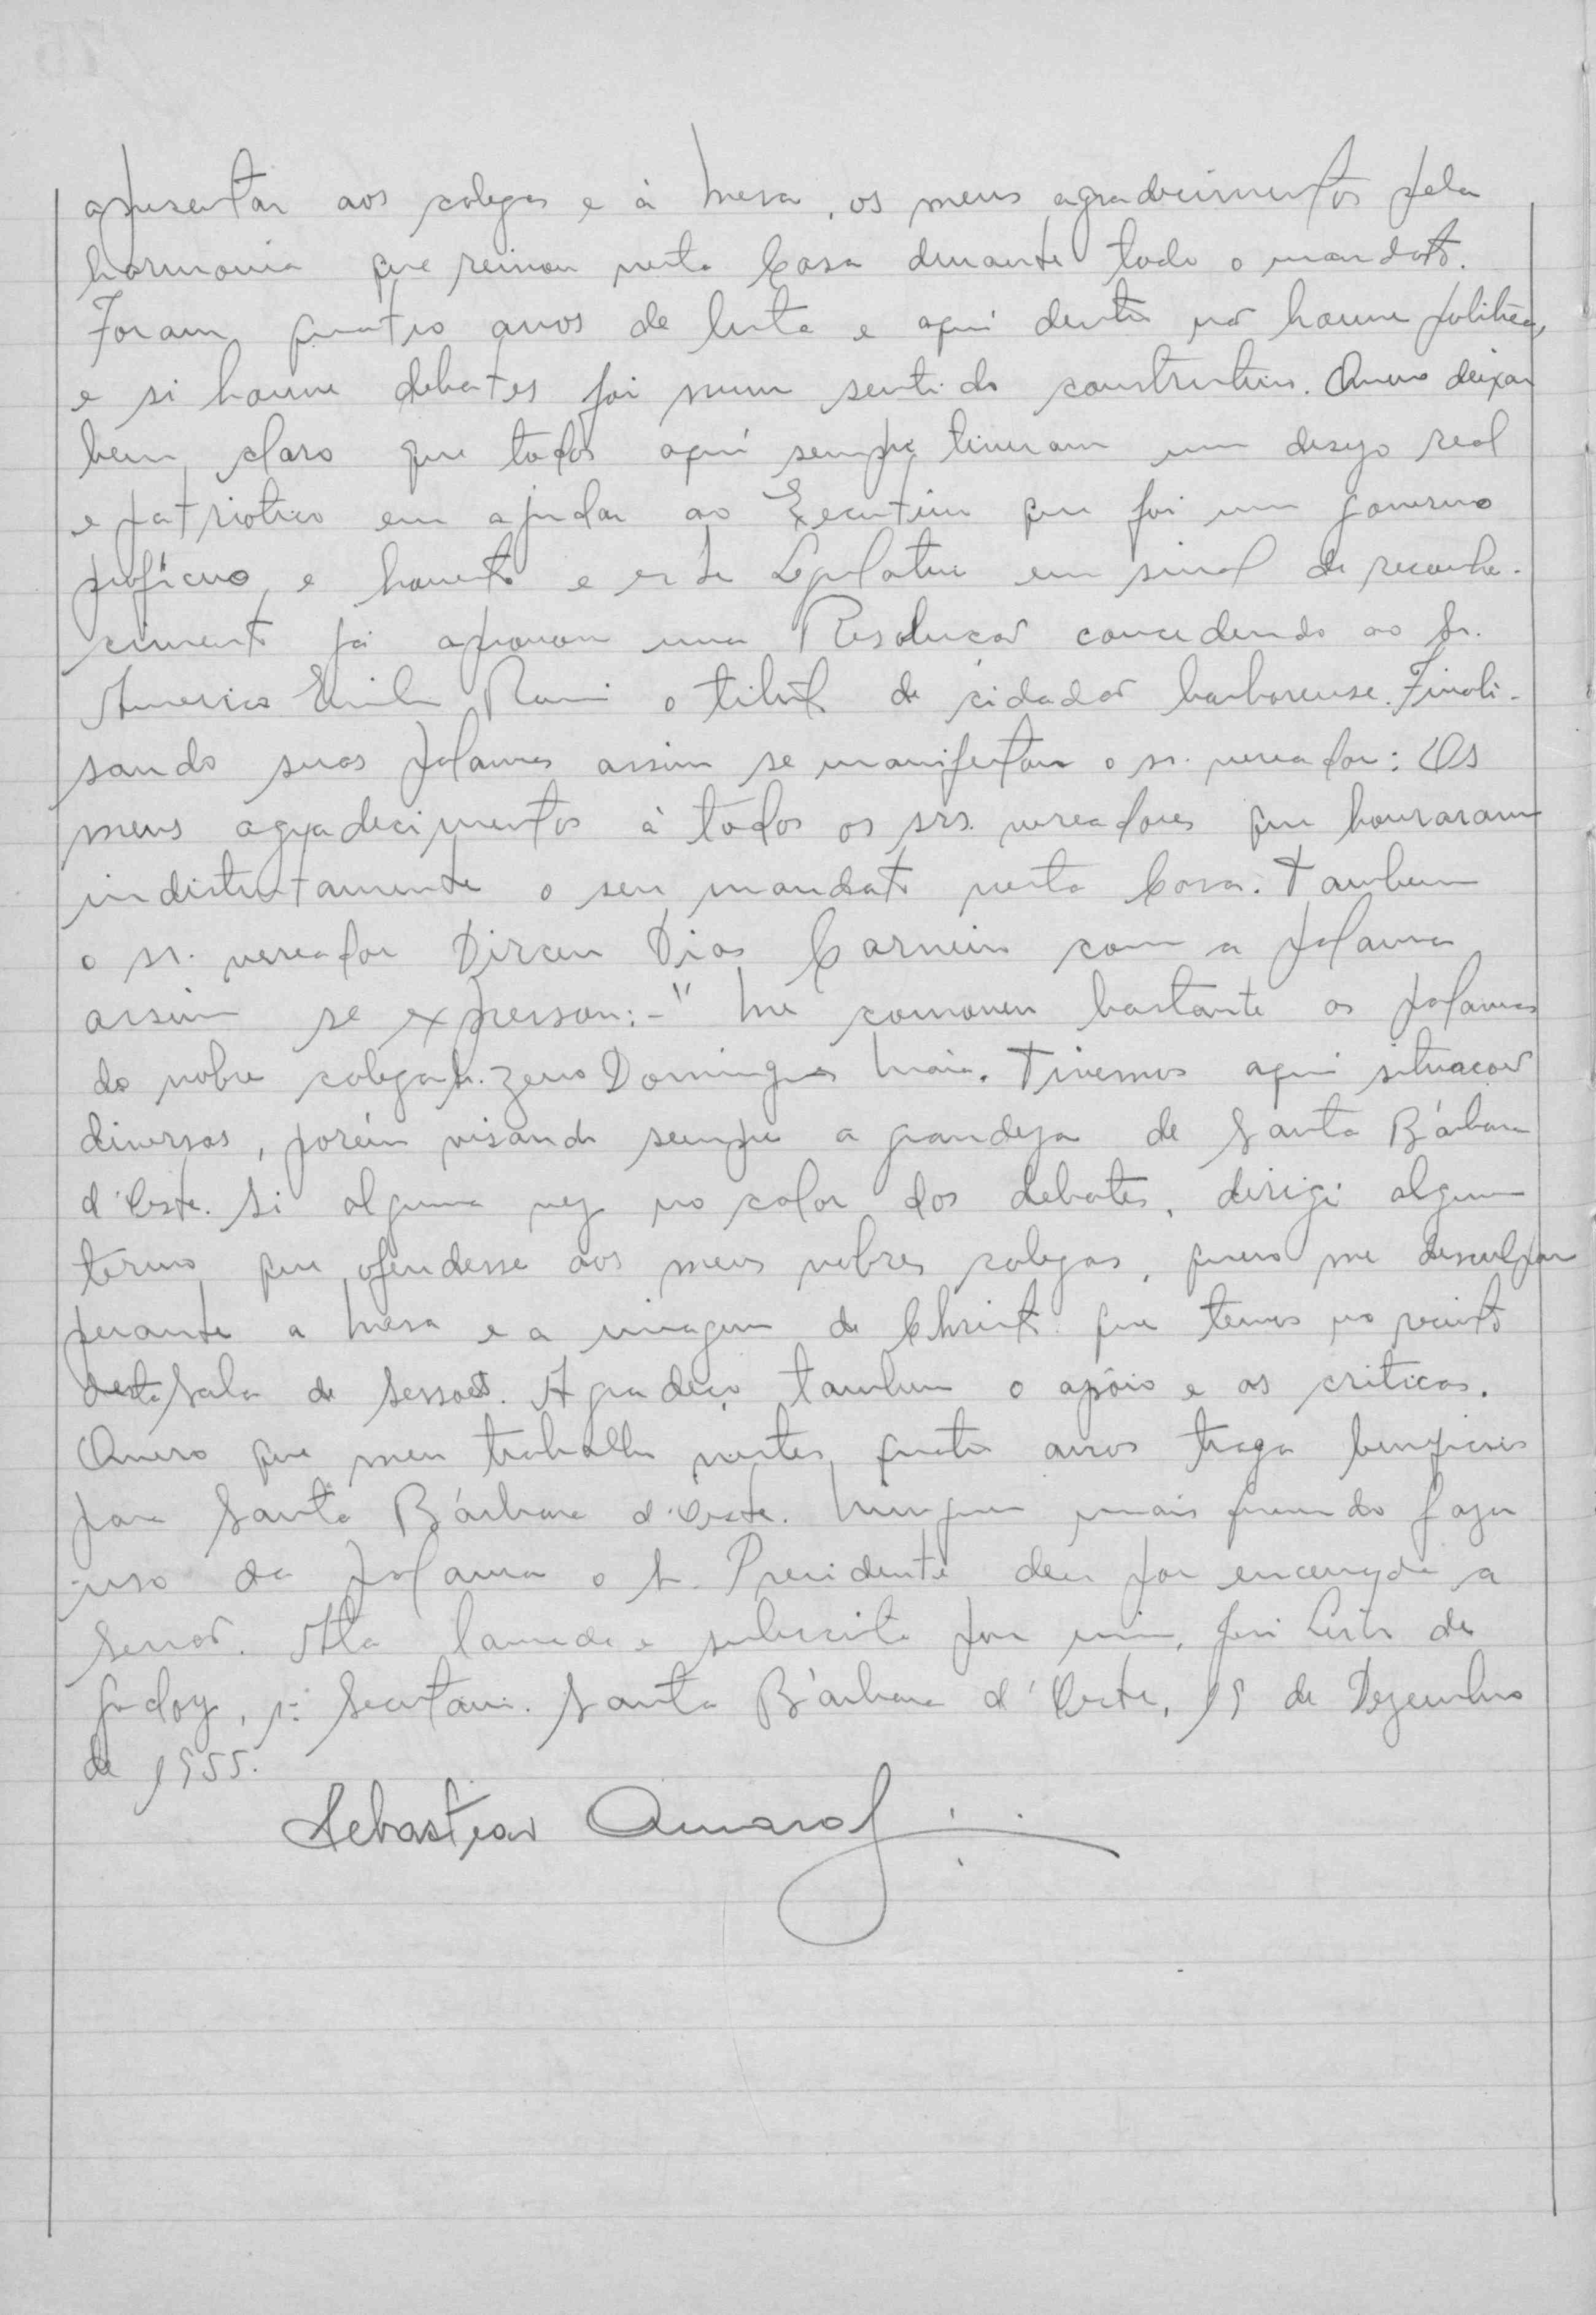 apresentar aos colegas e à Mesa, os meus agradecimentos pela
harmonia que reinou nesta Casa durante todo o mandato.
Foram quatro anos de luta e aqui dentro não houve politica,
e si houve debates foi num sentido construtivo. Quero deixar
bem claro que todos aqui sempre tiveram um desejo real
e patriotico em ajudar ao Executivo que foi um governo
profícuo, e honesto e este Legislativo em sinal de reconhe-
cimento já aprovou uma Resolução concedendo ao Sr.
Americo Emilio Romi o titulo de cidadão barbarense. Finali-
sando suas palavras assim se manifestou o sr. vereador: Os
meus agradecimentos à todos os srs. vereadores que honraram
indistintamente o seu mandato nesta Casa. Tambem
o sr. vereador Dirceu Dias Carneiro com a palavra
assim se expressou:- " Me comoveu bastante as palavras
do nobre colega Sr. Zeno Domingues Maia. Tivemos aqui situações
diversas, porém visando sempre a grandeza de Santa Bárbara
d'Oeste. Si alguma vez no calor dos debates, dirigi algum
termo que ofendesse aos meus nobres colegas, quero me desculpar
perante a Mesa e a imagem de Christo que temos no recinto
desta Sala de Sessões. Agradeço tambem o apôio e as criticas.
Quero que meu trabalho nestes quatro anos traga beneficios
para Santa Bárbara d'Oeste. Ninguem mais querendo fazer
uso da palavra o Sr. Presidente deu por encerrada a
Sessão. Ata lavrada e subscrita por mim, de
Godoy, 1º Secretario. Santa Bárbara d'Oeste, 19 de Dezembro
de 1955.
Sebastião Amaral